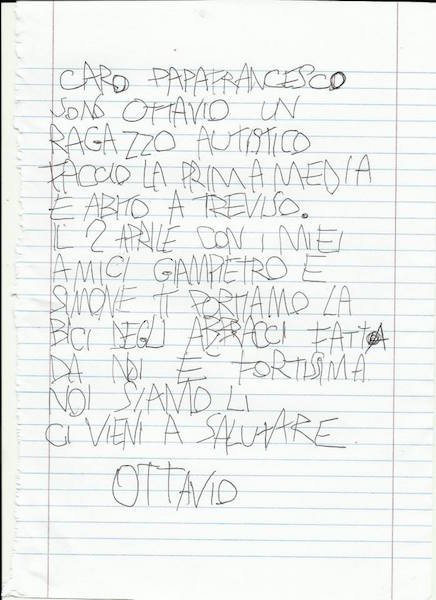 CARO PAPAFRANCESCO
SONO OTTAVIO UN
RAGAZZO AUTISTICO
FACCIO LA PRIMA MEDIA
E ABITO A TREVISO.
IL 2 APRILE CON I MIEI
AMICI GIAMPIETRO E
SIMONE TI PORTIAMO LA
BICI DEGLI ABBRACCI FATTA
DA NOI E FORTISSIMA
NOI SIAMO LI
CI VIENI A SALUTARE.
OTTAVIO